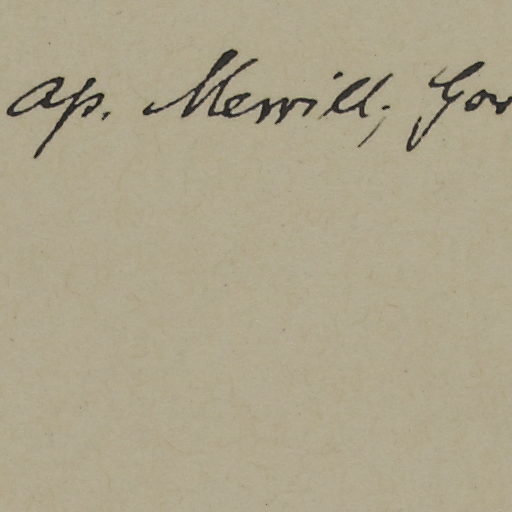 ap. Merrill; Gov